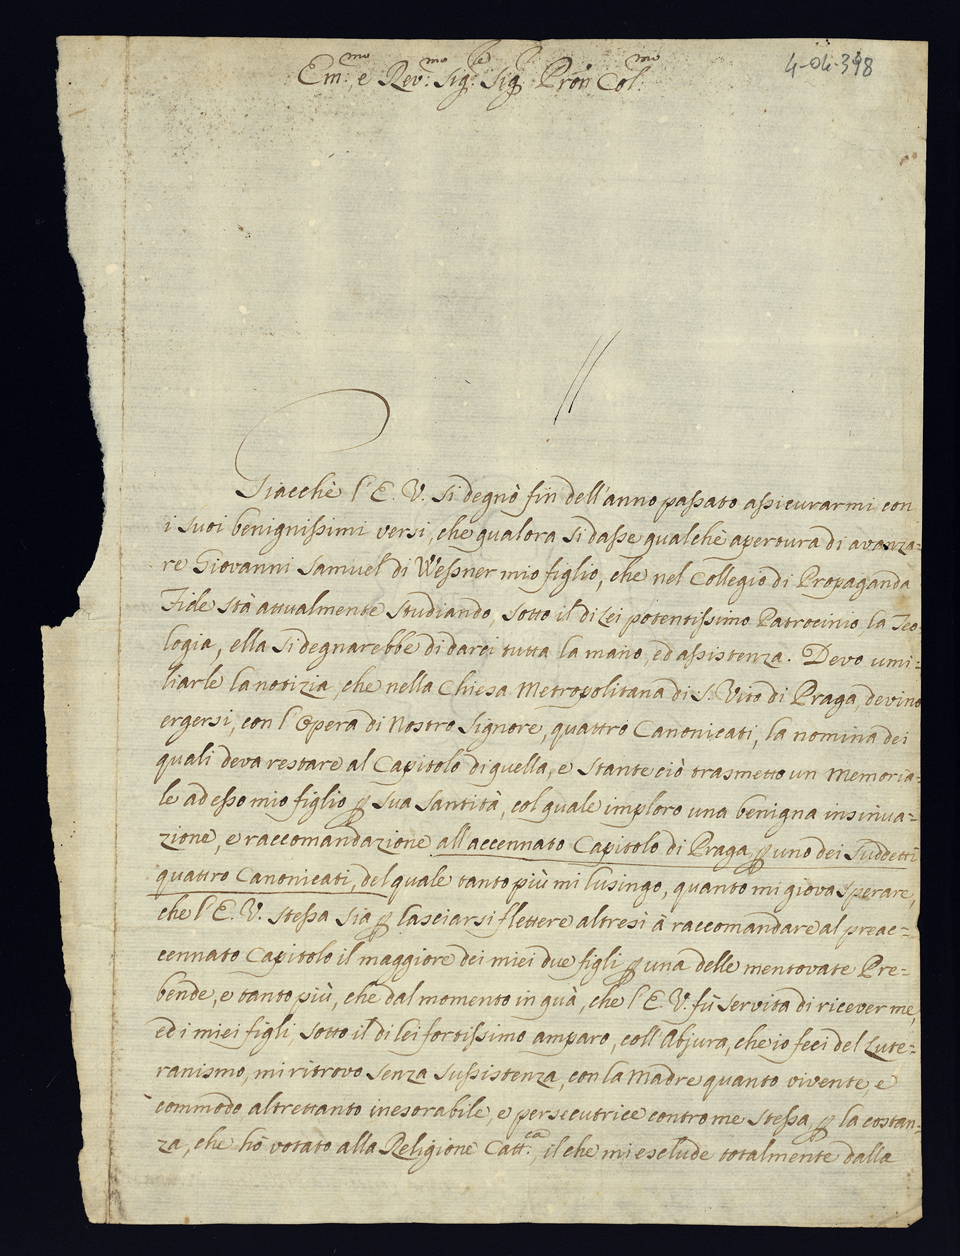 4-04-398
Em:mo e Rev:mo Sig:re Sig Pron Col:mo
Giacchè l'E. V. si degnò fin dell'anno passato assicurarmi con
i suoi benignissimi versi, che qualora si dasse qualche apertura di avanza=
re Giovanni Samuel di Wessner mio figlio, che nel Collegio di Propaganda
Fide stà attualmente studiando, sotto il di Lei potentissimo Patrocinio, la Teo=
logia, ella si degnarebbe di darci tutta la mano, ed assistenza. Devo umi=
liarle la notizia, che nella Chiesa Metropolitana di S. Vito di Praga, devino
ergersi, con l'Opera di Nostro Signore, quattro Canonicati, la nomina dei
quali deva restare al Capitolo di quella, e stante ciò trasmetto un Memoria=
le ad esso mio figlio ꝑ Sua Santità, col quale imploro una benigna insinua=
zione, e raccomandazione all'accennato Capitolo di Praga ꝑ uno dei suddetti
quattro Canonicati, del quale tanto più mi lusingo, quanto mi giova sperare,
che l'E. V. stessa sia ꝑ lasciarsi flettere altresì à raccomandare al preac=
cennato Capitolo il maggiore dei miei due figli ꝑ una delle mentovate Pre=
bende, e tanto più, che dal momento in quà, che l'E. V. fù servita di ricever me,
ed i miei figli, sotto il di lei fortissimo amparo, coll'Abjura, che io feci del Lute=
ranismo, mi ritrovo senza sussistenza, con la Madre quanto vivente, e
commodo altrettanto inesorabile, e persecutrice contro me stessa ꝑ la costan=
za, che hò votato alla Religione Catt:ca, il che mi esclude totalmente dalla